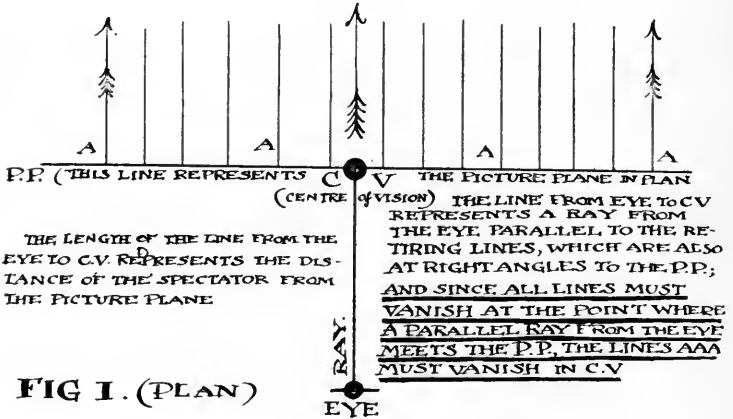 A A A A
P.P. (THIS LINE REPRESENTS C V THE PICTURE PLANE IN PLAN
(CENTRE of VISION)
THE LENGTH OF THE LINE FROM THE
EYE TO C.V. REPRESENTS THE DIS-
TANCE OF THE SPECTATOR FROM
THE PICTURE PLANE
THE LINE FROM EYE TO CV
REPRESENTS A RAY FROM
THE EYE PARALLEL TO THE RE-
TIRING LINES, WHICH ARE ALSO
AT RIGHT ANGLES TO THE P.P.;
AND SINCE ALL LINES MUST
VANISH AT THE POINT WHERE
A PARALLEL RAY FROM THE EYE
MEETS THE P.P., THE LINES AAA
MUST VANISH IN C.V
RAY.
FIG I. (PLAN)
EYE